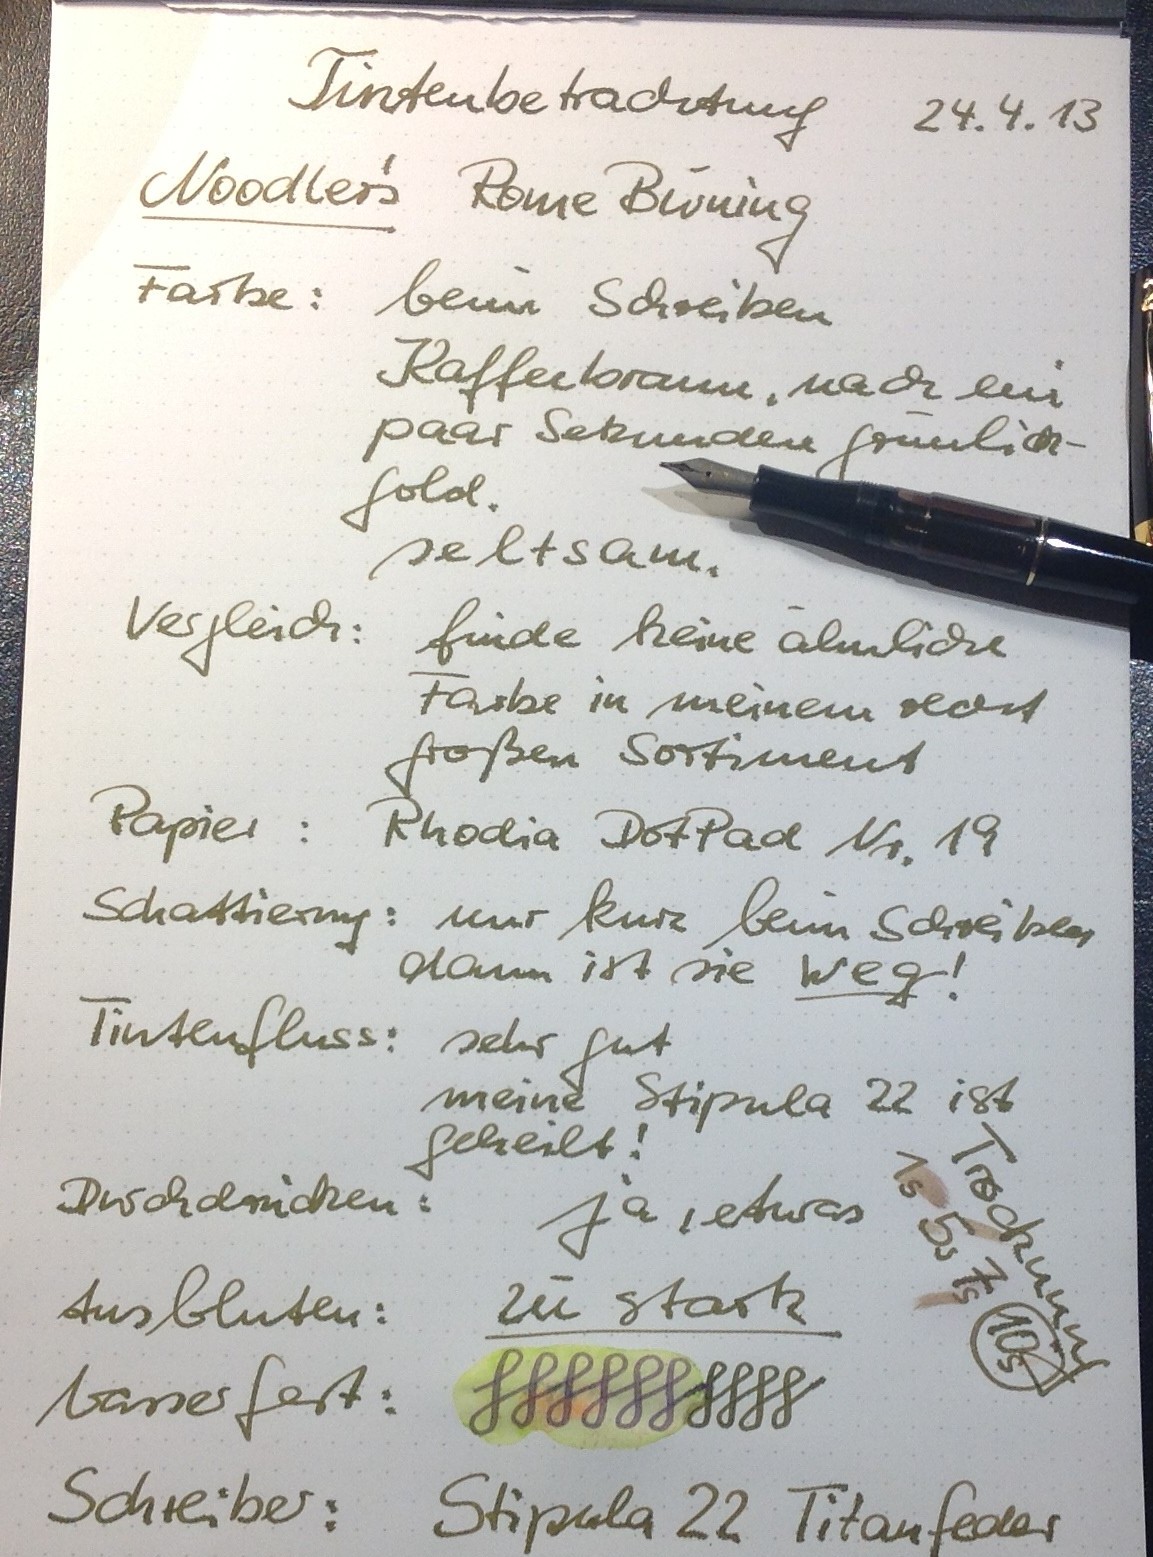 Tintenbetrachtung 24.4.13
Noodler's Rome Burning
Farbe: beim Schreiben
Kaffeebraun, nach ein
paar Sekunden grünlich-
gold.
seltsam.
Vergleich: finde keine ähnliche
Farbe in meinem recht
großen Sortiment
Papier: Rhodia DotPad Nr. 19
Schattierung: nur kurz beim Schreiben
dann ist sie weg!
Tintenfluss: sehr gut
meine Stipula 22 ist
geheilt!
Durchdrücken: ja, etwas
Trocknung
1s
5s
7s
10s
Ausbluten: zu stark
Wasserfest:
Schreiber: Stipula 22 Titanfeder